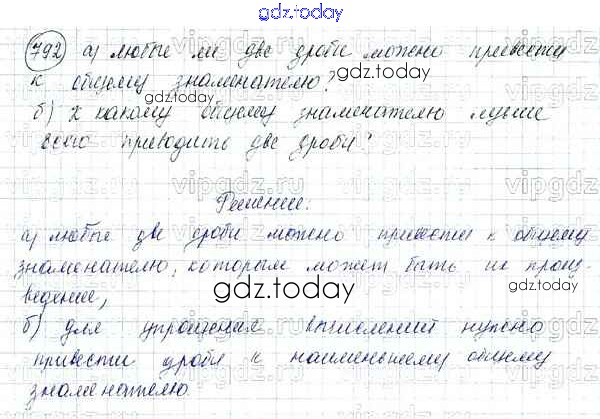 gdz.today
792 а) любые ли две дроби можно привести
к общему знаменателю?
gdz.today gdz.today
б) К какому общему знаменателю лучше
всего приводить две дроби?
Решение:
а) любые две дроби можно привести к общему
знаменателю, которым может быть их произ-
ведение,
gdz.today
б) для упрощения вычислений нужно
привести дроби к наименьшему общему
знаменателю.